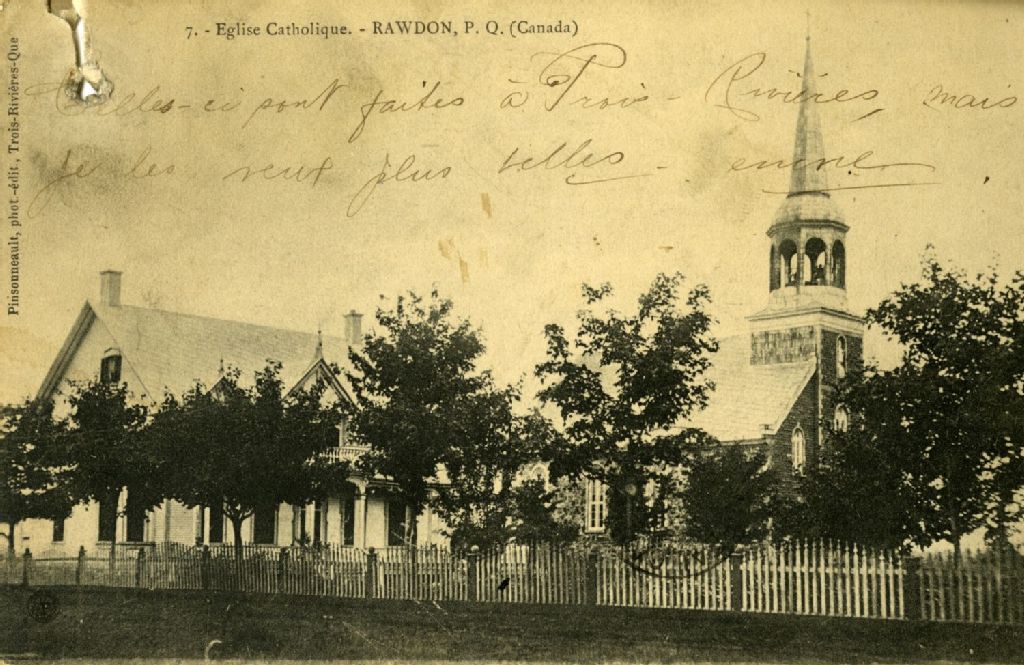 7. - Eglise Catholique. - RAWDON, P. Q. (Canada)
Celles-ci sont faites à Trois-Rivières, mais
je les veux plus belles -
Pinsonneault, phot.-édit., Trois-Rivières-Que